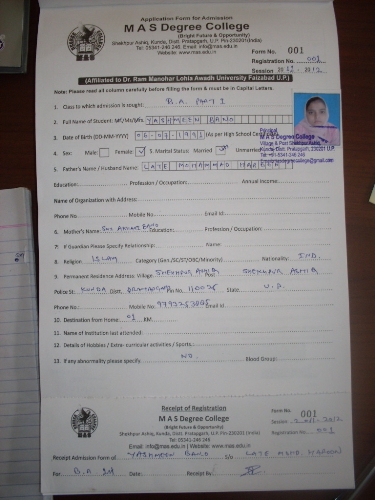 Application Form for Admission
M A S Degree College
(Bright Future & Opportunity)
Shekhpur Ashiq, Kunda, Distt. Pratapgarh, U.P.-230201(India)
Tel: 05341-246 248, Email: info@mas.edu.in
Website: www.mas.edu.in
Form No. 001
Registration No. 001
Session
(Affiliated to Dr. Ram Manohar Lohia Awadh University Faizabad U.P.)
Note: Please read all column carefully before filling the form & must be in Capital Letters.
1. Class to which admission is sought: B.A. Part I
2. Full Name of Student: Mr/Ms/Mrs YASHMEEN BANO
3. Date of Birth (DD-MM-YYYY) (As per High School Certificate)
4. Sex: Male: Female 5. Marital Status: Married Unmarried
5. Father's Name / Husband Name: LATE MOHAMMAD
Principal
M A S Degree College
Village & Post Shekhpur Ashiq,
Kunda, Distt. Pratapgarh, 230201 U.P.
Education: Profession / Occupation: Annual Income:
Name of Organization with Address:
Phone No Mobile No. Email Id:
6. Mother's Name: Education: Profession / Occupation:
7. If Guardian Please Specify Relationship: Name:
8. Religion: ISLAM Category (Gen./SC/ST/OBC/Minority) Nationality: IND.
9. Permanent Residence Address: Village SHEKHPUR ASHIQ Post SHEKHPUR ASHIQ
Police St: KUNDA Distt. Pin No. State: U.P.
Phone No.: Mobile No. Email Id:
10. Destination from Home: KM.
11. Name of Institution last attended:
12. Details of Hobbies / Extra- curricular activities / Sports:
13. If any abnormality please specify: NO. Blood Group:
Receipt of Registration
M A S Degree College
(Bright Future & Opportunity)
Shekhpur Ashiq, Kunda, Distt. Pratapgarh, U.P. Pin-230201 (India)
Tel: 05341-246 248
Email: info@mas.edu.in / Website: www.mas.edu.in
Form No. 001
Session
Registration No. 001
Receipt Admission Form of YASHMEEN BANO S/o LATE MOHD.
For B.A Date: Receipt By